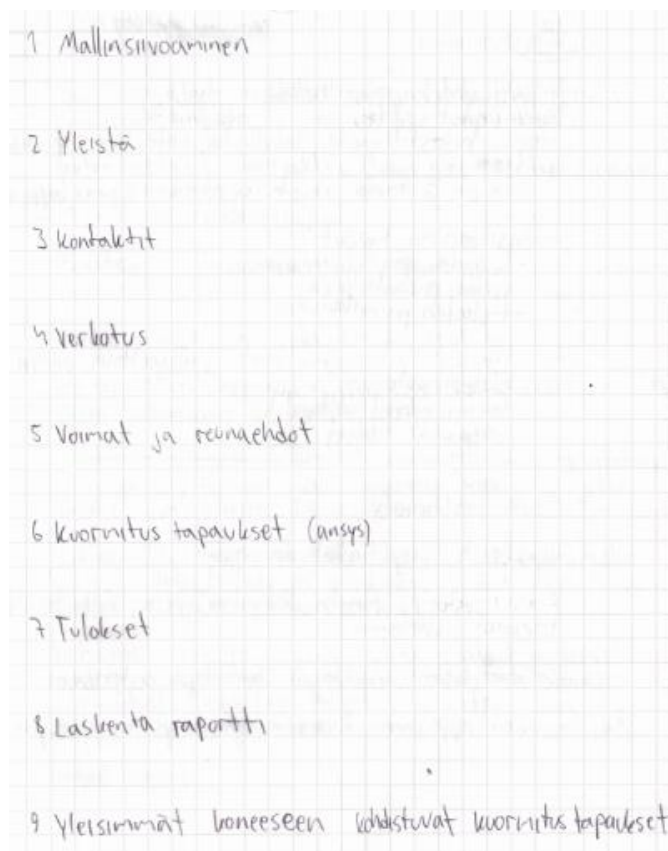 1 Mallinsiivoaminen
2 Yleistä
3 kontaktit
4 verkotus
5 Voimat ja reunaehdot
6 kuormitus tapaukset (ansys)
7 Tulokset
8 Laskenta raportti
9 Yleisimmät koneeseen kohdistuvat kuormitus tapaukset